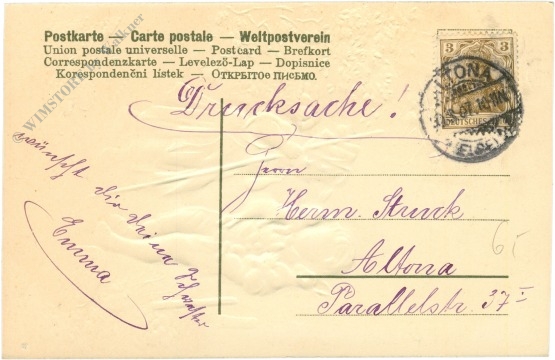 Postkarte — Carte postale — Weltpostverein
Union postale universelle — Postcard — Brefkort
Correspondenzkarte — Levelező-Lap — Dopisnice
Korespondenční lístek — ОТКРЫТОЕ ПИСЬМО.
WIMSTORE
3 3
DEUTSCHES
TONA
(ELBE)
Drucksache!
wünscht dir deine Schwester
Emma
Herrn
Herm. Struck
Altona
Parallelstr. 37 I
6,-